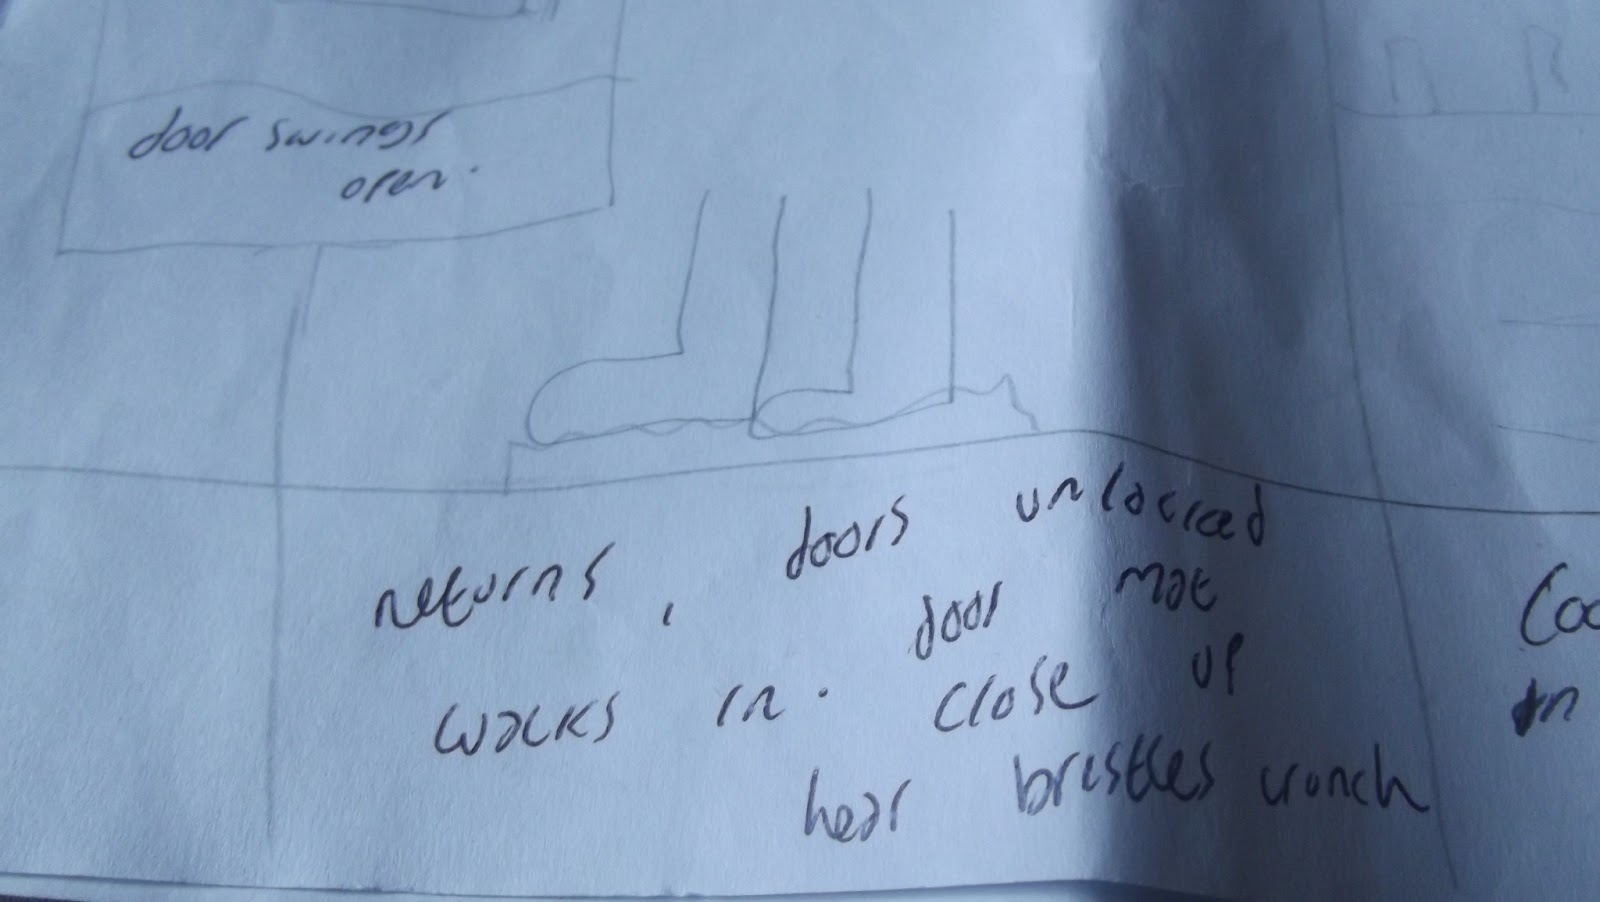 door swings
open.
returns, doors unlocked
walks in. door mat
close up
hear bristles crunch
in